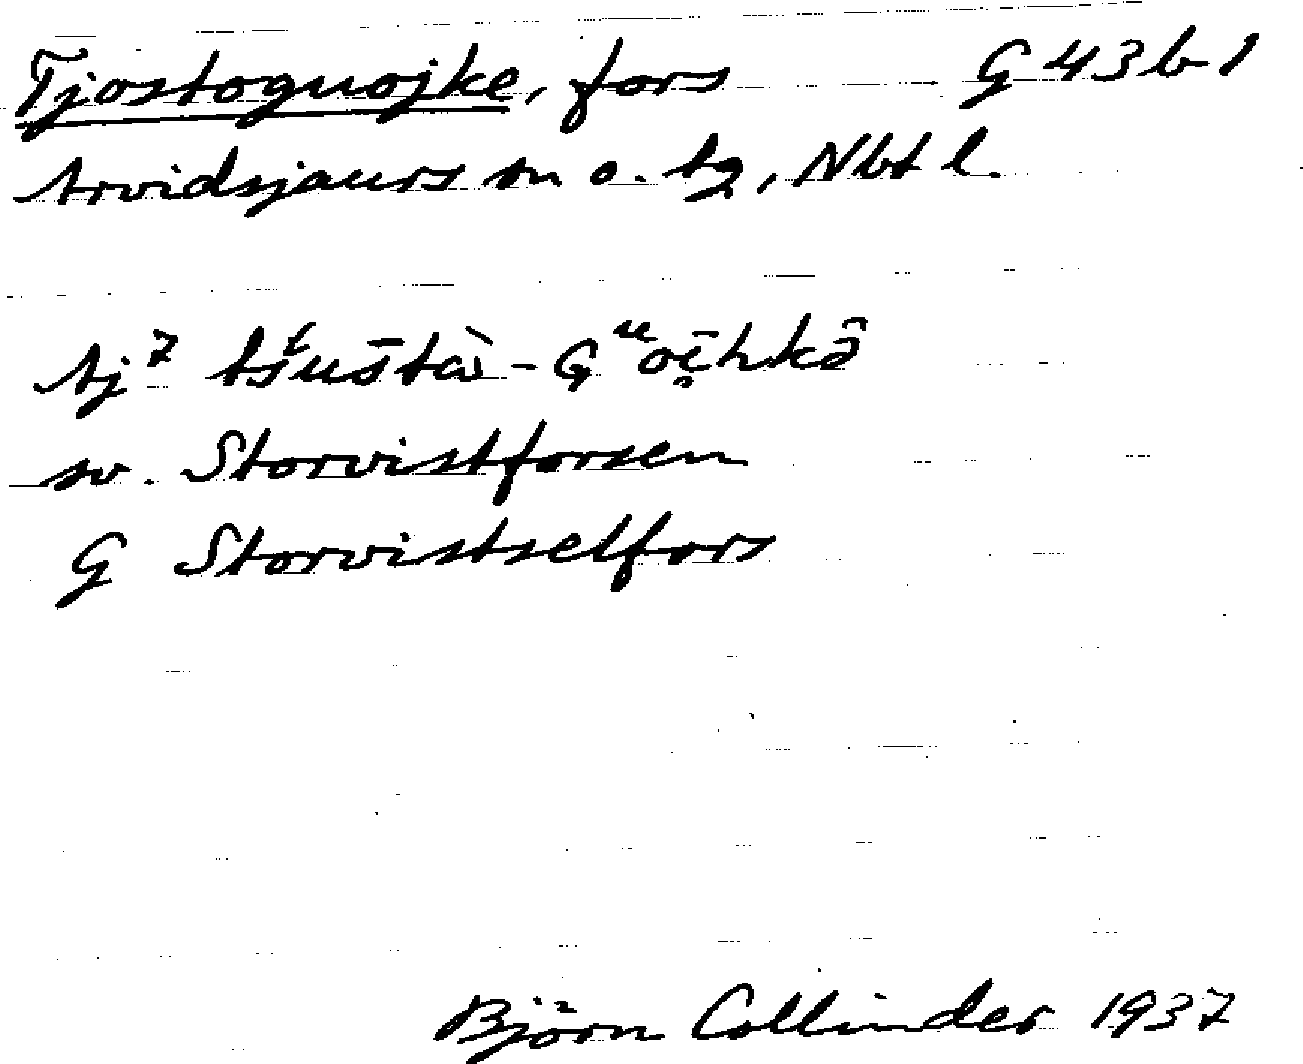 Tjostoguojke, fors G 43 b 1
Arvidsjaurs sn o. tg, Nbt l.
Aj 7
sv. Storvistforsen
G Storvistselfors
Björn Collinder 1937